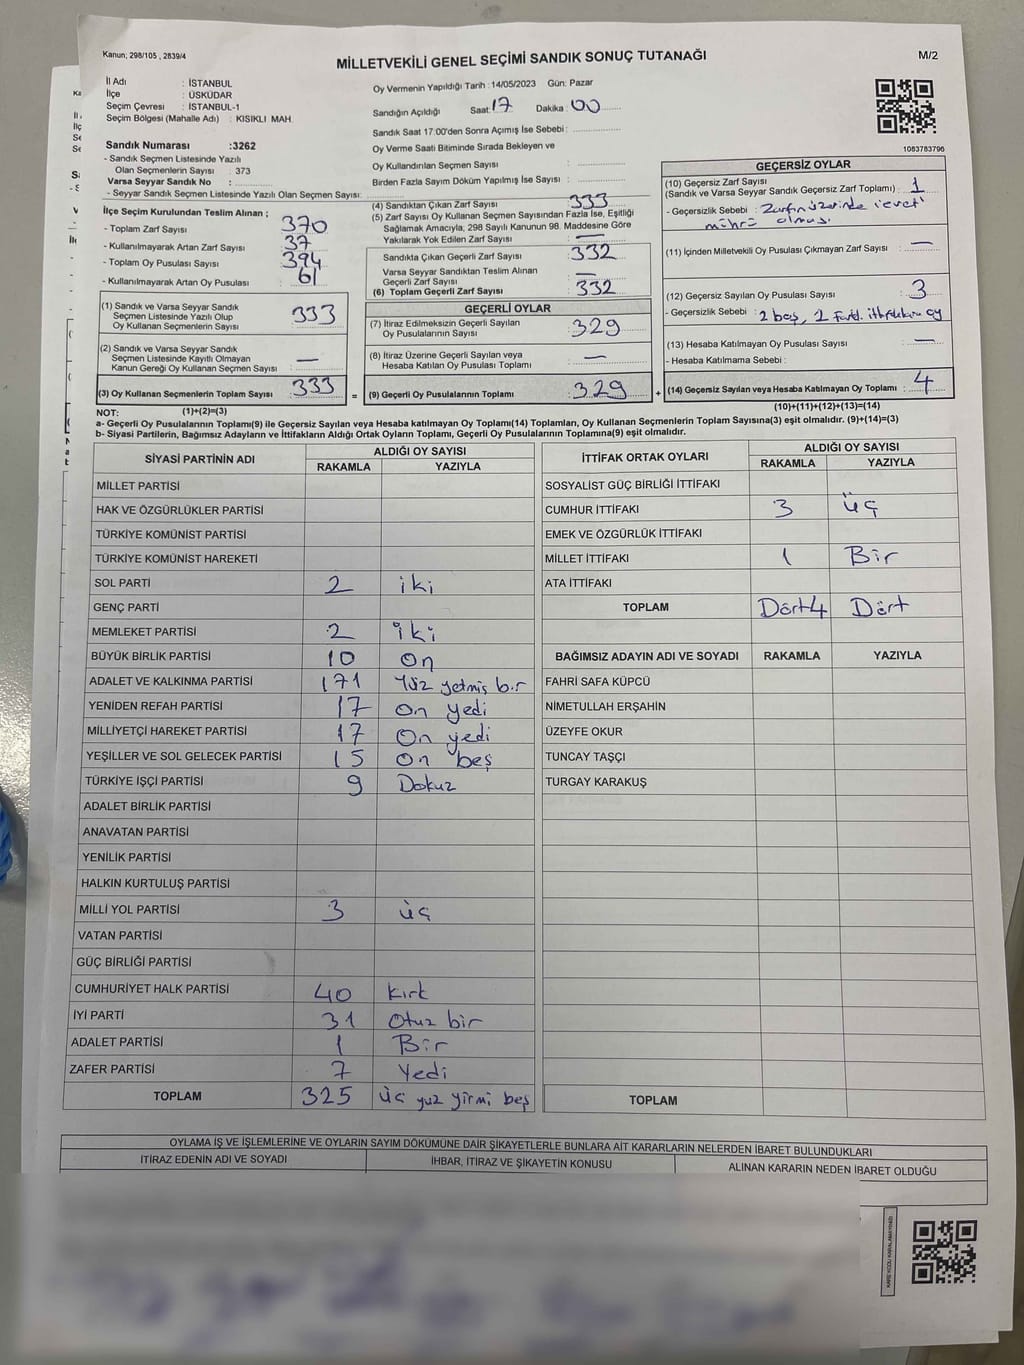 Kanun; 298/105 , 2839/4
MİLLETVEKİLİ GENEL SEÇİMİ SANDIK SONUÇ TUTANAĞI
M/2
İl Adı : İSTANBUL
İlçe : ÜSKÜDAR
Seçim Çevresi : İSTANBUL-1
Seçim Bölgesi (Mahalle Adı) : KISIKLI MAH.
Sandık Numarası :3262
- Sandık Seçmen Listesinde Yazılı
Olan Seçmenlerin Sayısı : 373
Varsa Seyyar Sandık No :
- Seyyar Sandık Seçmen Listesinde Yazılı Olan Seçmen Sayısı:
Oy Vermenin Yapıldığı Tarih :14/05/2023 Gün: Pazar
Sandığın Açıldığı Saat: 17 Dakika: 00
Sandık Saat 17:00'den Sonra Açımış İse Sebebi :
Oy Verme Saati Bitiminde Sırada Bekleyen ve
Oy Kullandırılan Seçmen Sayısı :
Birden Fazla Sayım Döküm Yapılmış İse Sayısı :
1083783796
İlçe Seçim Kurulundan Teslim Alınan ;
- Toplam Zarf Sayısı : 370
- Kullanılmayarak Artan Zarf Sayısı : 37
- Toplam Oy Pusulası Sayısı : 394
- Kullanılmayarak Artan Oy Pusulası : 61
(1) Sandık ve Varsa Seyyar Sandık
Seçmen Listesinde Yazılı Olup
Oy Kullanan Seçmenlerin Sayısı : 333
(2) Sandık ve Varsa Seyyar Sandık
Seçmen Listesinde Kayıtlı Olmayan
Kanun Gereği Oy Kullanan Seçmen Sayısı : —
(3) Oy Kullanan Seçmenlerin Toplam Sayısı : 333
(4) Sandıktan Çıkan Zarf Sayısı : 333
(5) Zarf Sayısı Oy Kullanan Seçmen Sayısından Fazla İse, Eşitliği
Sağlamak Amacıyla, 298 Sayılı Kanunun 98. Maddesine Göre
Yakılarak Yok Edilen Zarf Sayısı : —
Sandıkta Çıkan Geçerli Zarf Sayısı : 332
Varsa Seyyar Sandıktan Teslim Alınan
Geçerli Zarf Sayısı : —
(6) Toplam Geçerli Zarf Sayısı : 332
GEÇERLİ OYLAR
(7) İtiraz Edilmeksizin Geçerli Sayılan
Oy Pusulalarının Sayısı : 329
(8) İtiraz Üzerine Geçerli Sayılan veya
Hesaba Katılan Oy Pusulası Toplamı : —
= (9) Geçerli Oy Pusulalarının Toplamı : 329 +
GEÇERSİZ OYLAR
(10) Geçersiz Zarf Sayısı
(Sandık ve Varsa Seyyar Sandık Geçersiz Zarf Toplamı) : 1
- Geçersizlik Sebebi : Zarfın üzerinde 'evet'
mührü olması
(11) İçinden Milletvekili Oy Pusulası Çıkmayan Zarf Sayısı : —
(12) Geçersiz Sayılan Oy Pusulası Sayısı : 3
- Geçersizlik Sebebi : 2 boş, 1 ittifaklara oy
(13) Hesaba Katılmayan Oy Pusulası Sayısı : —
- Hesaba Katılmama Sebebi :
(14) Geçersiz Sayılan veya Hesaba Katılmayan Oy Toplamı : 4
NOT: (1)+(2)=(3) (10)+(11)+(12)+(13)=(14)
a- Geçerli Oy Pusulalarının Toplamı(9) ile Geçersiz Sayılan veya Hesaba katılmayan Oy Toplamı(14) Toplamları, Oy Kullanan Seçmenlerin Toplam Sayısına(3) eşit olmalıdır. (9)+(14)=(3)
b- Siyasi Partilerin, Bağımsız Adayların ve İttifakların Aldığı Ortak Oyların Toplamı, Geçerli Oy Pusulalarının Toplamına(9) eşit olmalıdır.
SİYASİ PARTİNİN ADI ALDIĞI OY SAYISI
RAKAMLA YAZIYLA
MİLLET PARTİSİ
HAK VE ÖZGÜRLÜKLER PARTİSİ
TÜRKİYE KOMÜNİST PARTİSİ
TÜRKİYE KOMÜNİST HAREKETİ
SOL PARTİ 2 iki
GENÇ PARTİ
MEMLEKET PARTİSİ 2 iki
BÜYÜK BİRLİK PARTİSİ 10 On
ADALET VE KALKINMA PARTİSİ 171 Yüz yetmiş bir
YENİDEN REFAH PARTİSİ 17 On yedi
MİLLİYETÇİ HAREKET PARTİSİ 17 On yedi
YEŞİLLER VE SOL GELECEK PARTİSİ 15 On beş
TÜRKİYE İŞÇİ PARTİSİ 9 Dokuz
ADALET BİRLİK PARTİSİ
ANAVATAN PARTİSİ
YENİLİK PARTİSİ
HALKIN KURTULUŞ PARTİSİ
MİLLİ YOL PARTİSİ 3 üç
VATAN PARTİSİ
GÜÇ BİRLİĞİ PARTİSİ
CUMHURİYET HALK PARTİSİ 40 Kırk
İYİ PARTİ 31 Otuz bir
ADALET PARTİSİ 1 Bir
ZAFER PARTİSİ 7 Yedi
TOPLAM 325 üç yüz yirmi beş
İTTİFAK ORTAK OYLARI ALDIĞI OY SAYISI
RAKAMLA YAZIYLA
SOSYALİST GÜÇ BİRLİĞİ İTTİFAKI
CUMHUR İTTİFAKI 3 üç
EMEK VE ÖZGÜRLÜK İTTİFAKI
MİLLET İTTİFAKI 1 Bir
ATA İTTİFAKI
TOPLAM Dört4 Dört
BAĞIMSIZ ADAYIN ADI VE SOYADI RAKAMLA YAZIYLA
FAHRİ SAFA KÜPCÜ
NİMETULLAH ERŞAHİN
ÜZEYFE OKUR
TUNCAY TAŞÇI
TURGAY KARAKUŞ
TOPLAM
OYLAMA İŞ VE İŞLEMLERİNE VE OYLARIN SAYIM DÖKÜMÜNE DAİR ŞİKAYETLERLE BUNLARA AİT KARARLARIN NELERDEN İBARET BULUNDUKLARI
İTİRAZ EDENİN ADI VE SOYADI İHBAR, İTİRAZ VE ŞİKAYETİN KONUSU ALINAN KARARIN NEDEN İBARET OLDUĞU